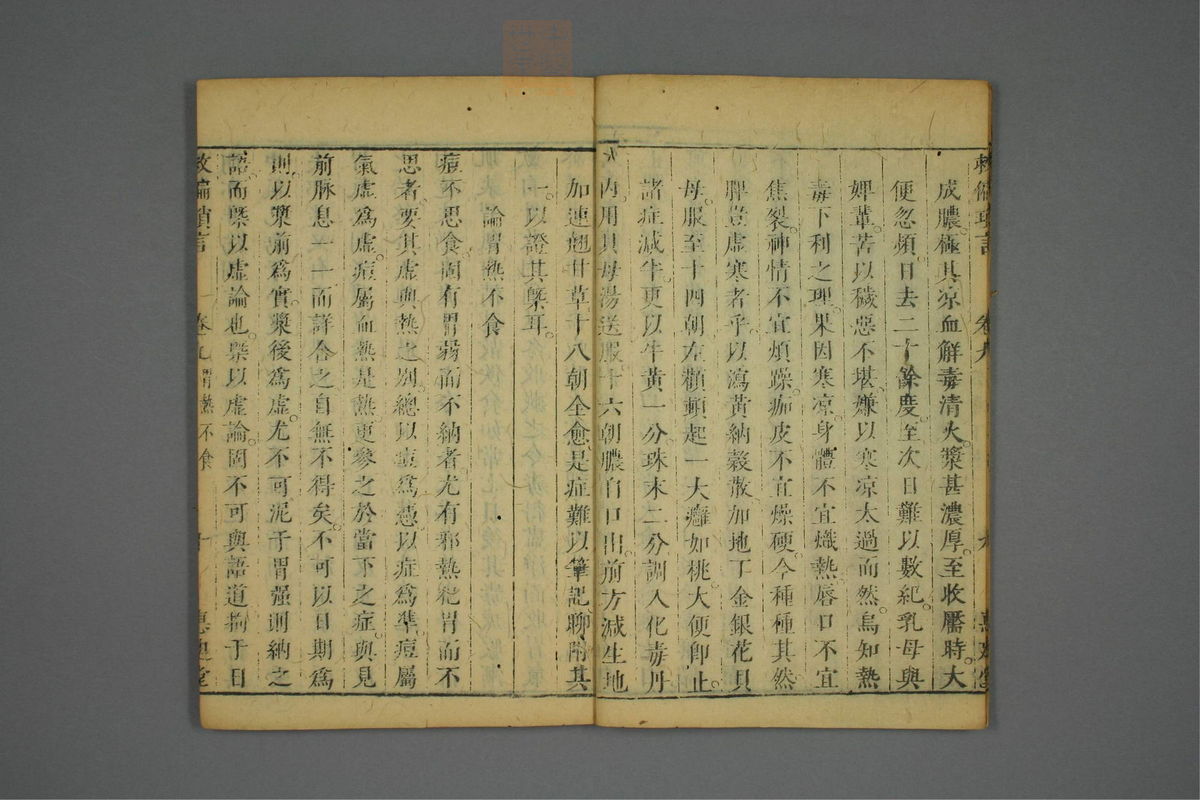 救偏瑣言 卷九 九 惠迪堂
成膿極其凉血解毒清火漿甚濃厚至收靨時大
便忽頻日去二十餘度至次日難以數紀乳母與
婢輩苦以穢惡不堪嫌以寒凉太過而然烏知熱
毒下利之理果因寒凉身體不宜熾熱唇口不宜
焦裂神情不宜煩躁痂皮不宜燥硬今種種其然
脾豈虛寒者乎以瀉黃納穀散加地丁金銀花貝
母服至十四朝左顴頰起一大癰如桃大便卽止
諸症減半更以牛黃一分珠末二分調入化毒丹
內用貝母湯送服十六朝膿自口出前方減生地
加連翹甘草十八朝全愈是症難以筆記聊附其
一以證其槩耳
論胃熱不食
痘不思食固有胃弱而不納者尤有邪熱秕胃而不
思者要其虛與熱之別總以痘爲憑以症爲準痘屬
氣虛爲虛痘屬血熱是熱更參之於當下之症與見
前脉息一一而詳合之自無不得矣不可以日期爲
則以漿前爲實漿後爲虛尤不可泥于胃强則納之
語而槩以虛論也槩以虛論固不可與語道拘于日
救偏瑣言 卷九 胃熱不食 十 惠迪堂